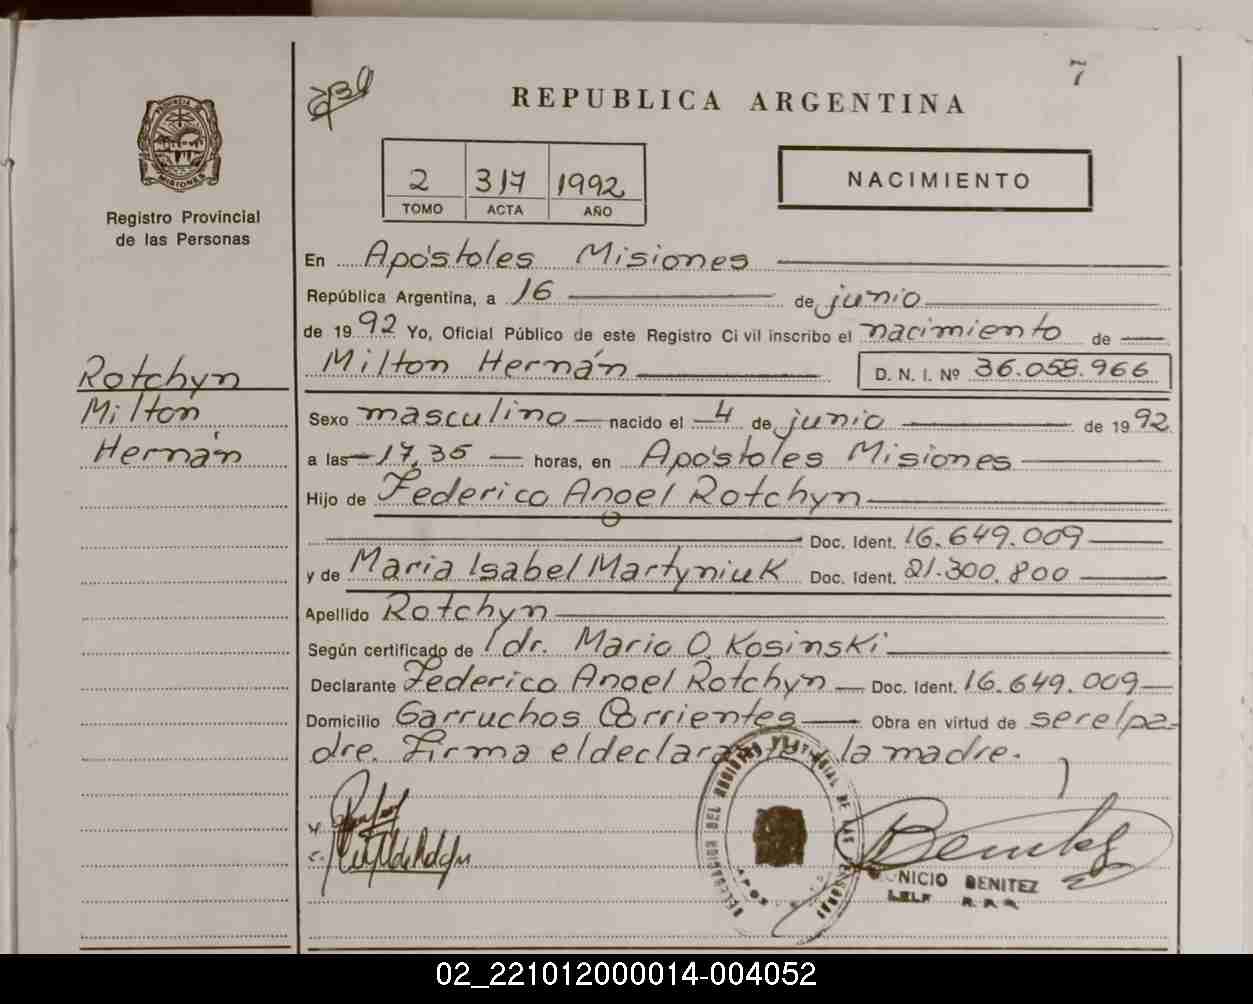 7
REPUBLICA ARGENTINA
PROVINCIA DE MISIONES
Registro Provincial
de las Personas
2 317 1992
TOMO ACTA AÑO
NACIMIENTO
En Apóstoles Misiones
República Argentina, a 16 de junio
de 1992 Yo, Oficial Público de este Registro Civil inscribo el nacimiento de
Milton Hernán D. N. I. Nº 36.058.966
Rotchyn
Milton
Hernán
Sexo masculino nacido el 4 de junio de 1992
a las 17,35 horas, en Apóstoles Misiones
Hijo de Federico Angel Rotchyn
Doc. Ident. 16.649.009
y de Maria Isabel Martyniuk Doc. Ident. 21.300.800
Apellido Rotchyn
Según certificado de dr. Mario O. Kosinski
Declarante Federico Angel Rotchyn Doc. Ident. 16.649.009
Domicilio Garruchos Corrientes Obra en virtud de ser el pa-
dre. Firma el declarante la madre.
DELEGACION DEL REGISTRO PROVINCIAL DE LAS PERSONAS
Benitez
NICIO BENITEZ
02_221012000014-004052